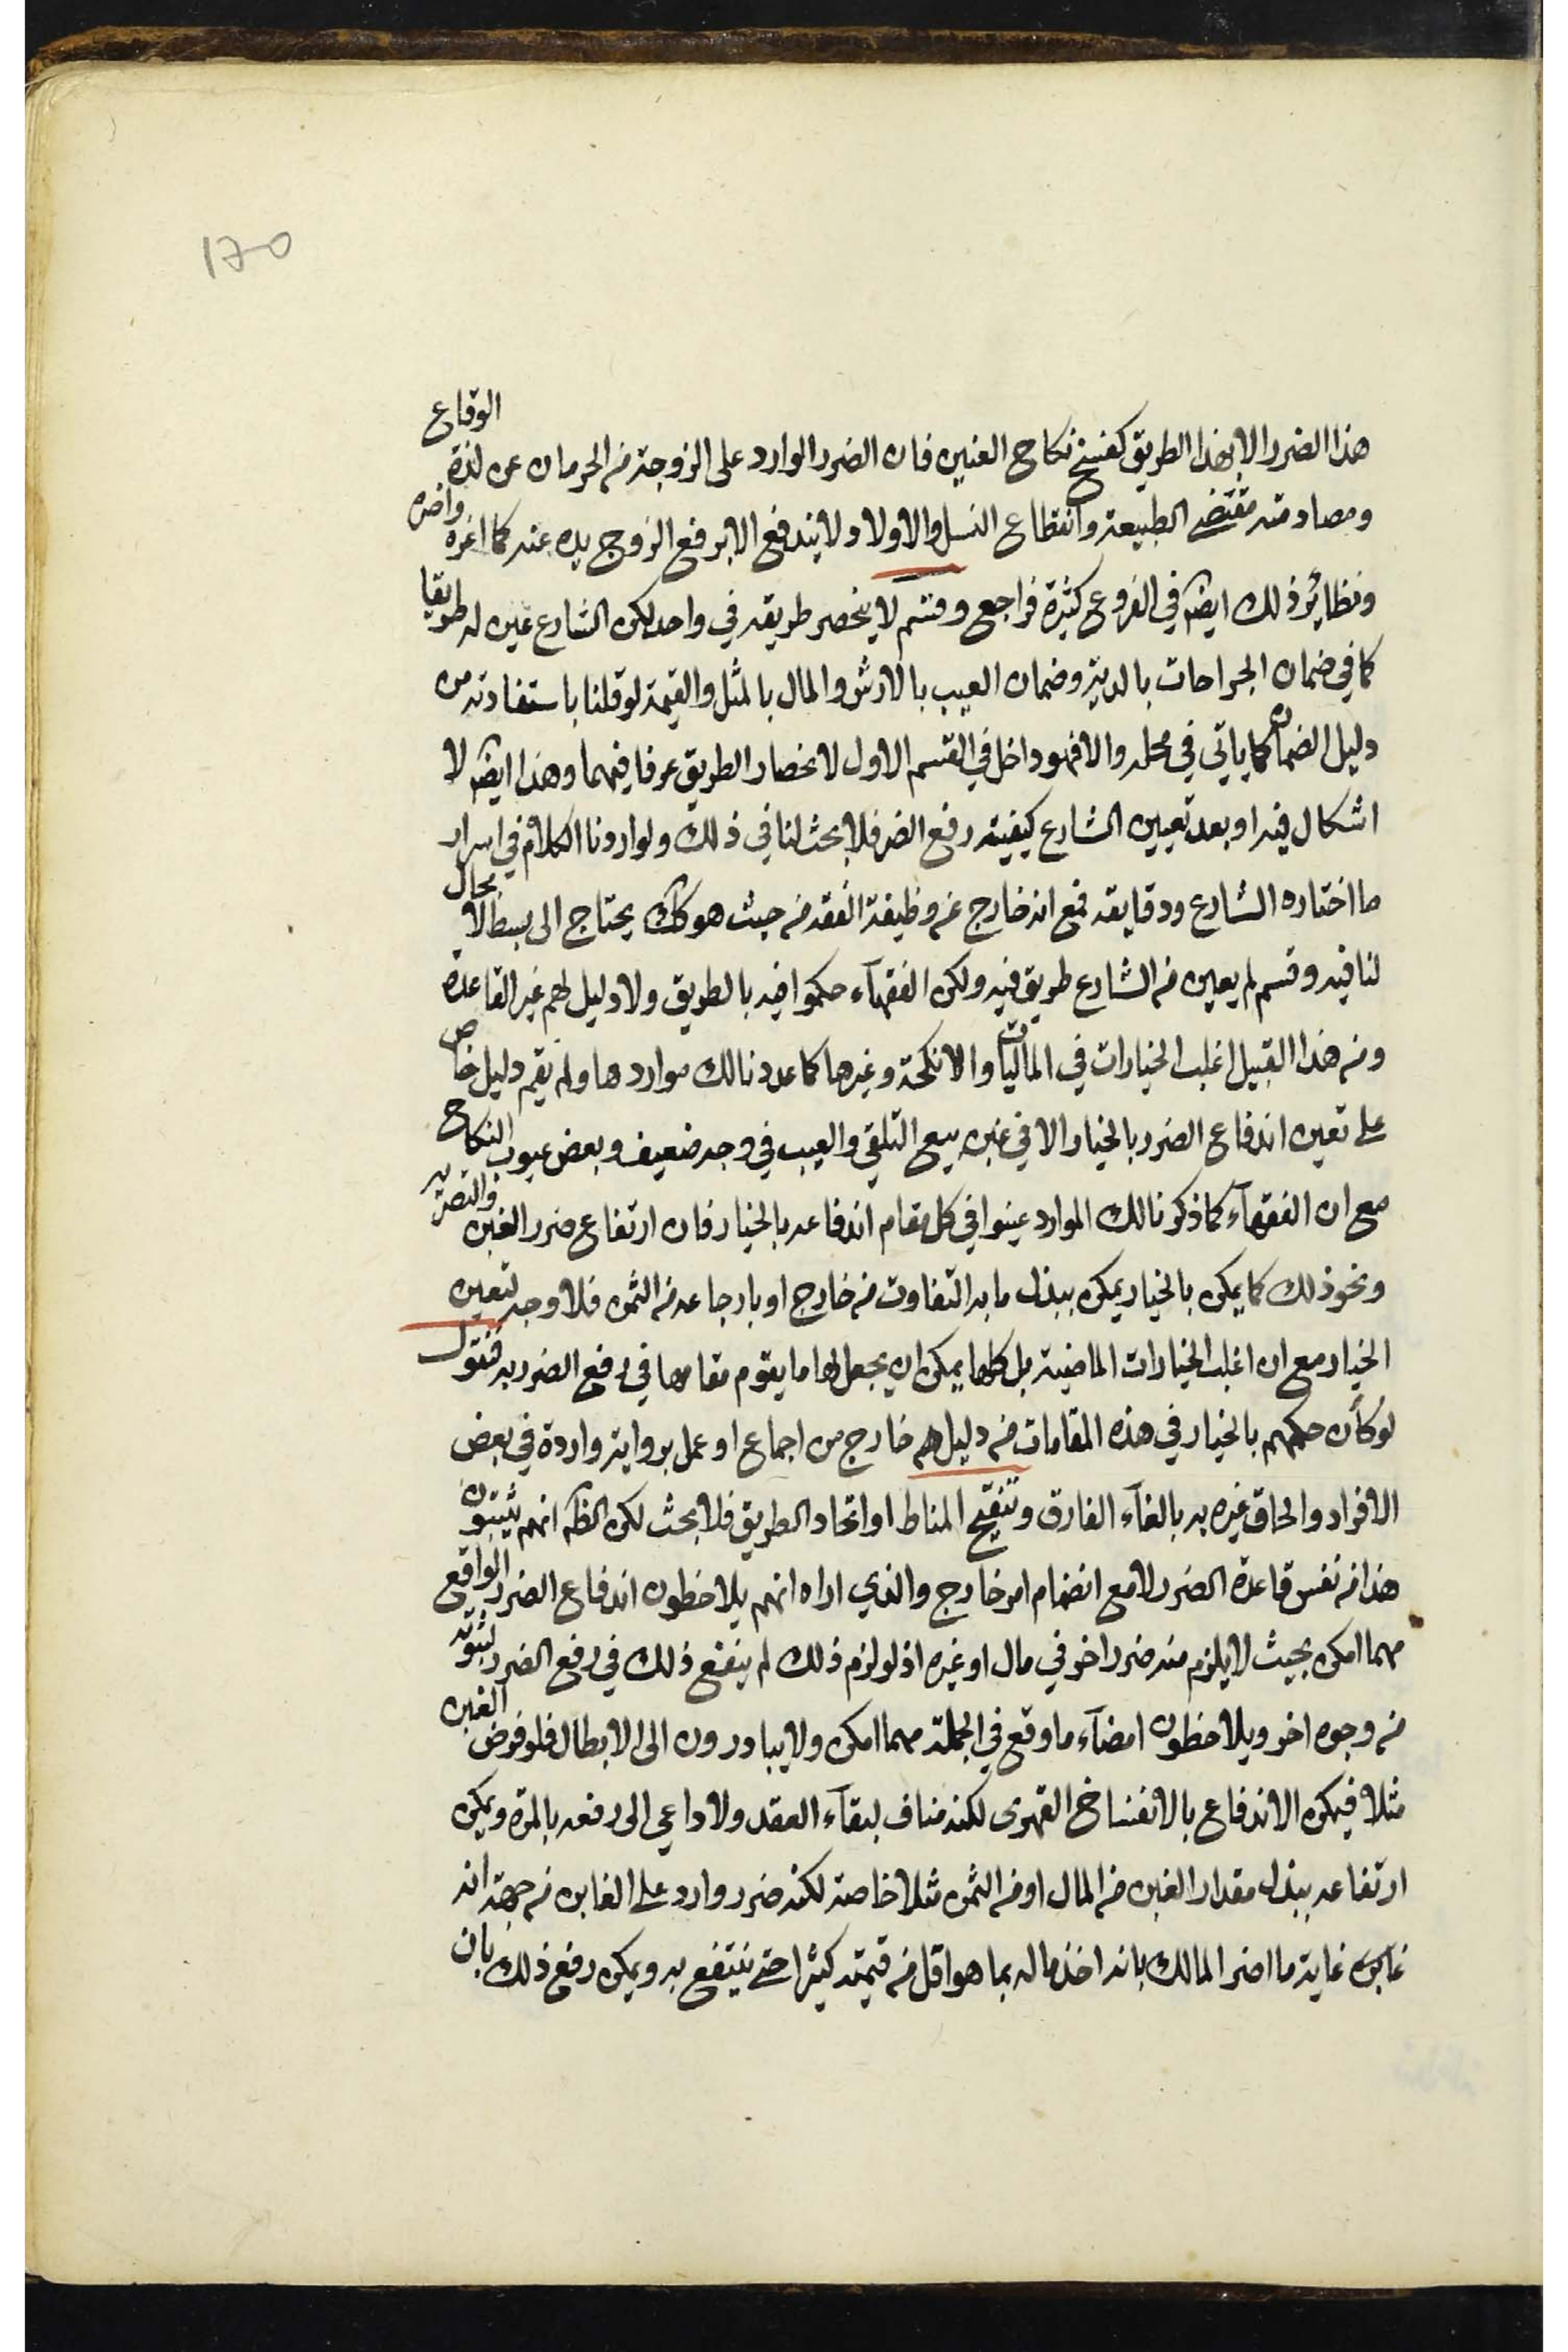 ١٦٥
هذا الضرر الا بهذا الطريق كفسخ نكاح العنين فان الضرر الوارد على الزوجة من الحرمان عن لذة الوقاع
ومصادمته مقتضى الطبيعة وانقطاع النسل والاولاد لا يندفع الا برفع الزوج يده عنه كما اغره واضره
ونظائر ذلك ايضا في الفروع كثيرة فراجع وقسم لا ينحصر طريقه في واحد لكن الشارع عين له طريقا
كما في ضمان الجراحات بالدية وضمان العيب بالارش والمال بالمثل والقيمة لو قلنا باستفادته من
دليل الضمان كما ياتي في محله والا فهو داخل في القسم الاول لانحصار الطريق عرفا فيهما وهذا ايضا لا
اشكال فيه او بعد تعيين الشارع كيفية رفع الضرر فلا بحث لنا في ذلك ولو اردنا الكلام في اسرار
ما اختاره الشارع ودقايقه فمع انه خارج عن وظيفة الفقه من حيث هو كك يحتاج الى بسط لا مجال
لنا فيه وقسم لم يعين من الشارع طريق فيه ولكن الفقهآء حكموا فيه بالطريق ولا دليل لهم غير القاعدة
ومن هذا القبيل اغلب الخيارات في الماليات والانكحة وغيرها كما عددنا لك مواردها ولم يقم دليل خاص
على تعين اندفاع الضرر بالخيار الا في غبن بيع التلقي والعيب في وجه ضعيف وبعض عيوب النكاح
مع ان الفقهآء كما ذكرنا لك الموارد عينوا في كل مقام اندفاعه بالخيار فان ارتفاع ضرر الغبن والتصرية
ونحو ذلك كما يمكن بالخيار يمكن ببذل ما به التفاوت من خارج او بارجاعه من الثمن فلا وجه لتعين
الخيار مع ان اغلب الخيارات الماضية بل كلها يمكن ان يجعل لها ما يقوم مقامها في رفع الضرر به فنقول
لو كان حكمهم بالخيار في هذه المقامات من دليل لهم خارج من اجماع او عمل برواية واردة في بعض
الافراد والحاق غيره به بالغآء الفارق وتنقيح المناط او اتحاد الطريق فلا بحث لكن الظ انهم يثبتون
هذا من نفس قاعدة الضرر لا مع انضمام امر خارج والذي اراه انهم يلاحظون اندفاع الضرر الواقع
مهما امكن بحيث لا يلزم منه ضرر اخر في مال او غيره اذ لو لزم ذلك لم ينفع ذلك في رفع الضرر لثبوته
من وجوه اخر ويلاحظون امضآء ما وقع في الجملة مهما امكن ولا يبادرون الى الابطال فلو فرض الغبن
مثلا فيمكن الاندفاع بالانفساخ القهرى لكنه مناف لبقآء العقد ولا داعي الى رفعه بالمرة ويمكن
ارتفاعه ببذل مقدار الغبن من المال او من الثمن مثلا خاصة لكنه ضرر وارد على الغابن من جهة انه
غابن غاية ما اضر المالك بانه اخذ ماله بما هو اقل من قيمته كثيرا حتى ينتفع به ويمكن رفع ذلك بان